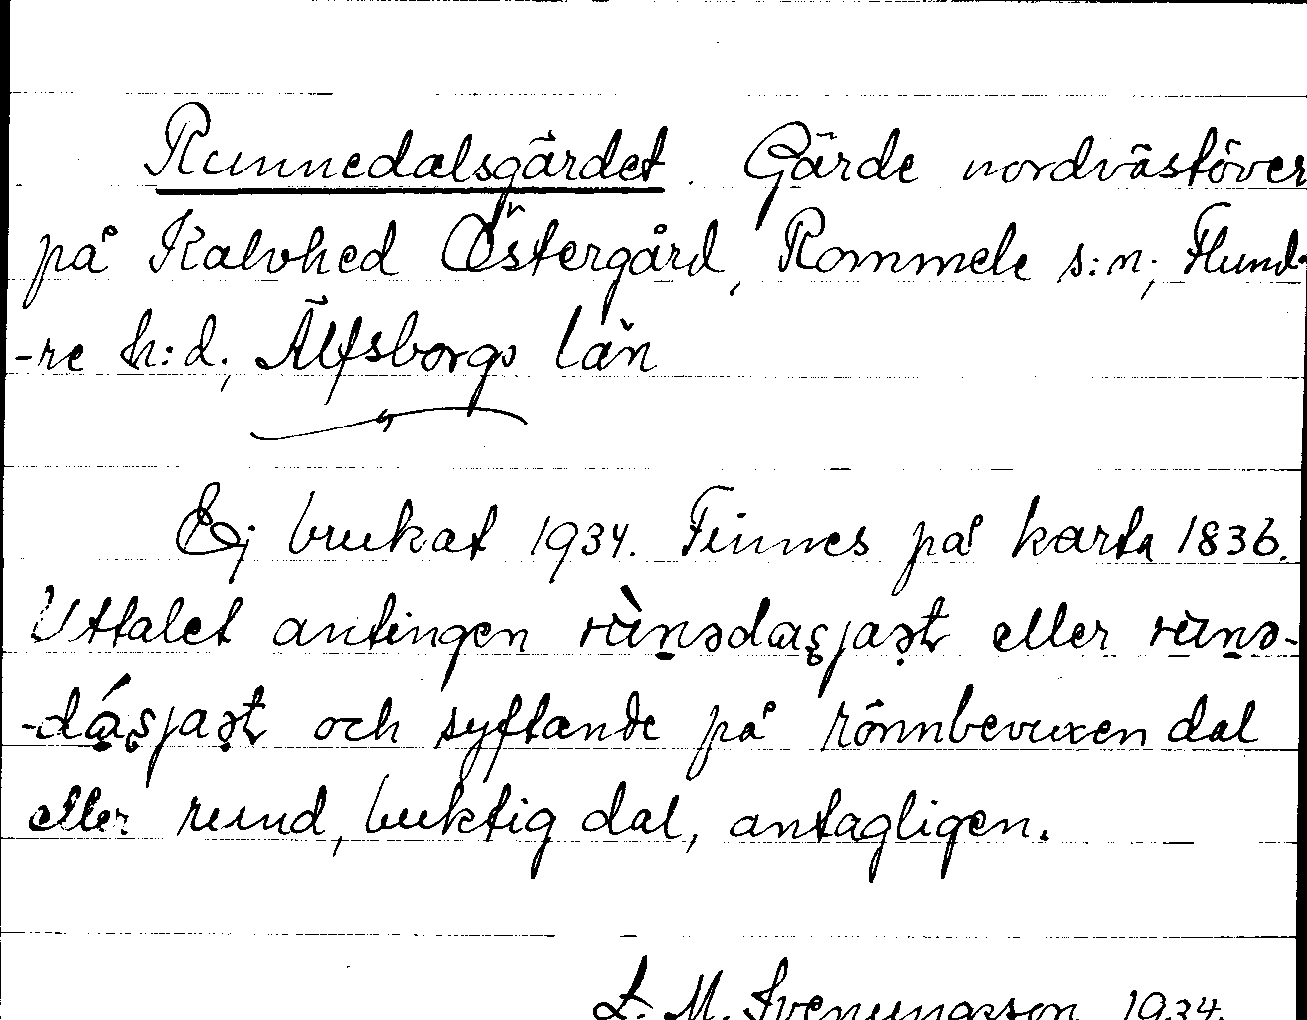 Runnedalsgärdet. Gärde nordvästöver
på Kalvhed Östergård, Rommele s:n; Flund-
-re h:d; Älfsborgs län
Ej brukat 1934. Finnes på karta 1836.
Uttalet antingen eller
och syftande på rönnbevuxen dal
eller rund, buktig dal, antagligen.
L. M. Svenungsson 1934.